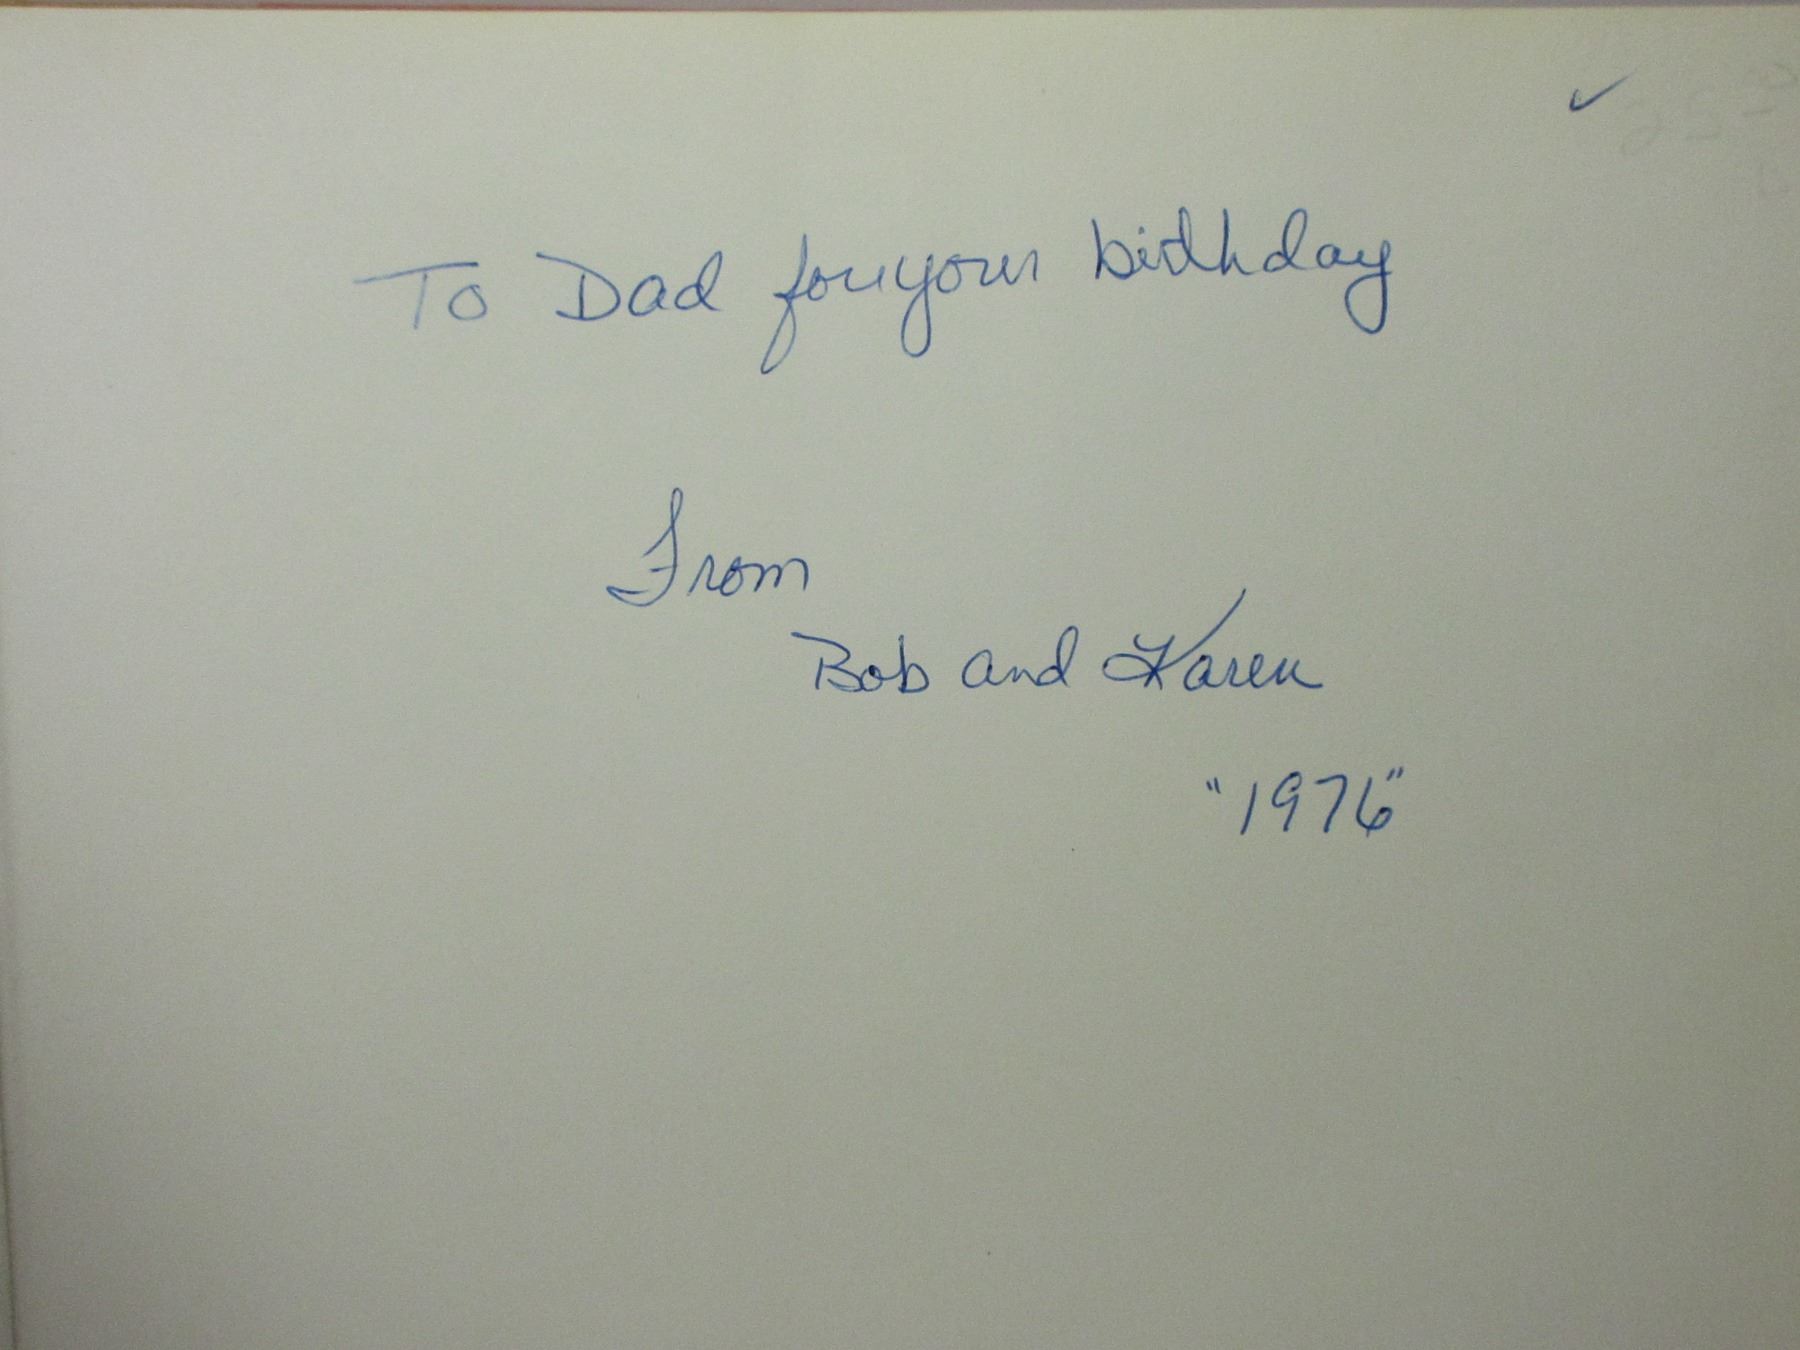 To Dad for your birthday
From
Bob and Karen
"1976"